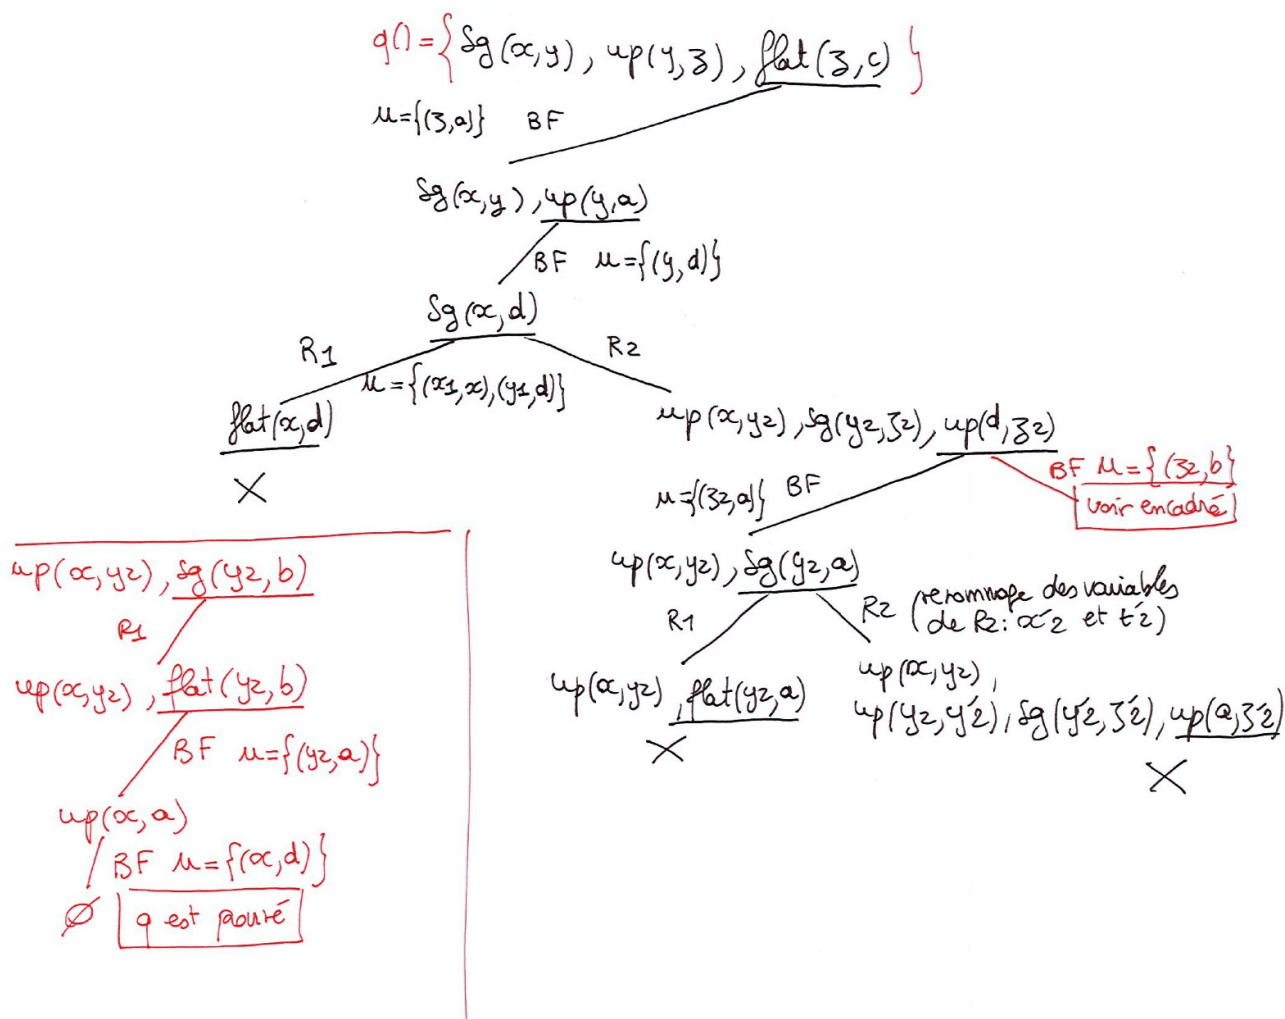 q() = { sg(x,y), up(y,z), flat(z,c) }
μ={(z,a)} BF
sg(x,y), up(y,a)
BF μ={(y,d)}
sg(x,d)
R1 R2
μ={(x1,x),(y1,d)}
flat(x,d)
X
up(x,y2), sg(y2,z2), up(d,z2)
μ={(z2,a)} BF
BF μ={(z2,b}
voir encadré
up(x,y2), sg(y2,a)
R1
R2 (renommage des variables
de R2: x'2 et t'2)
up(x,y2), flat(y2,a)
X
up(x,y2),
up(y2,y'2), sg(y'2,z'2), up(a,z'2)
X
up(x,y2), sg(y2,b)
R1
up(x,y2), flat(y2,b)
BF μ={(y2,a)}
up(x,a)
BF μ={(x,d)}
∅ q est prouvé